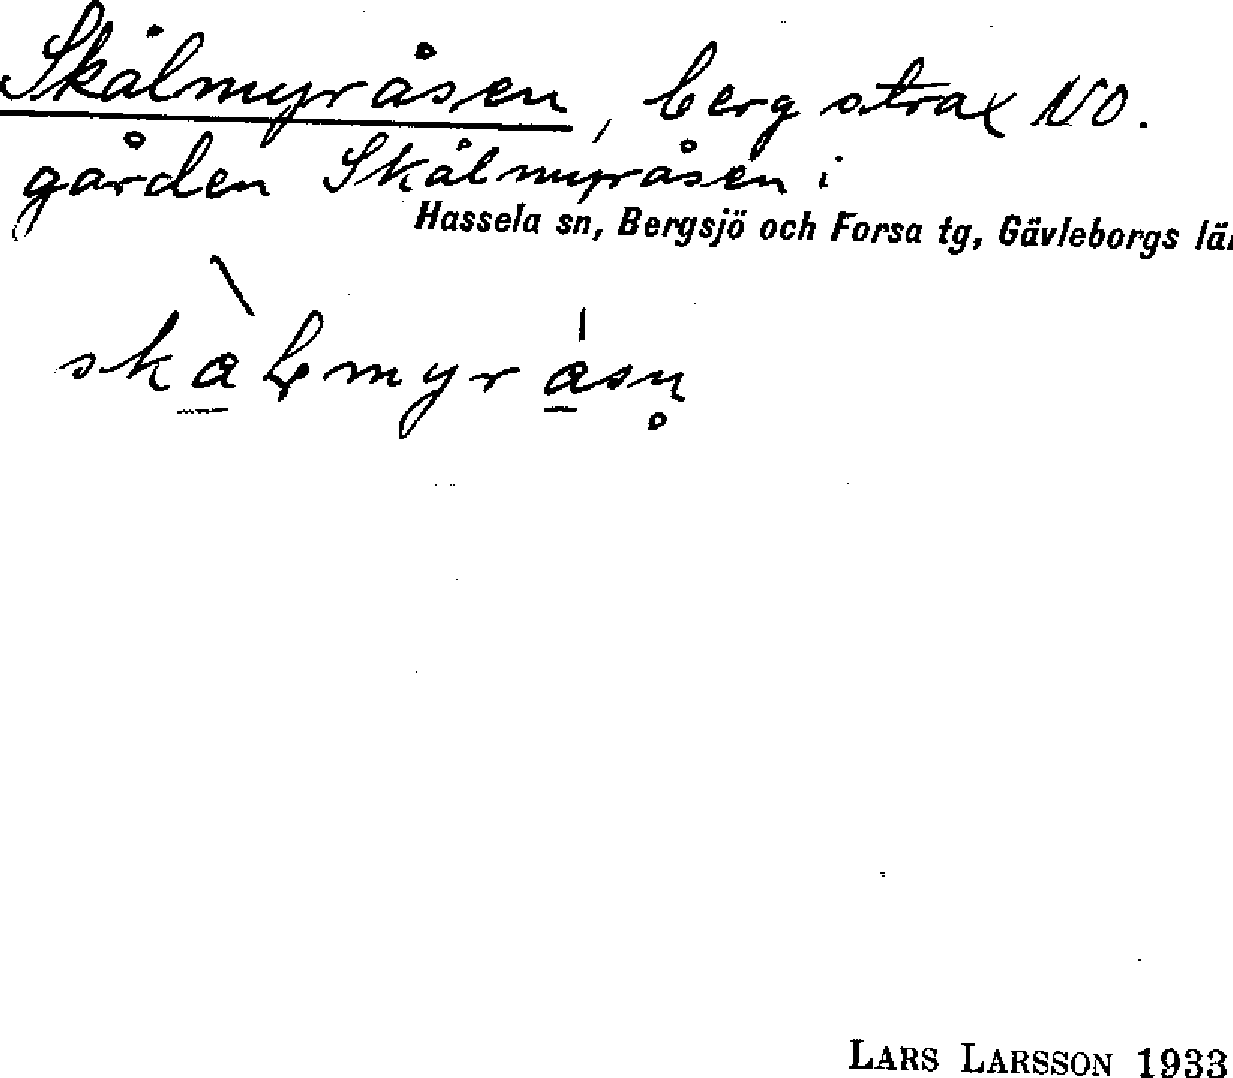 Skålmyråsen, berg strax NO.
gården Skålmyråsen i
Hassela sn, Bergsjö och Forsa tg, Gävleborgs lä
skàlmyrásn̥
LARS LARSSON 1933